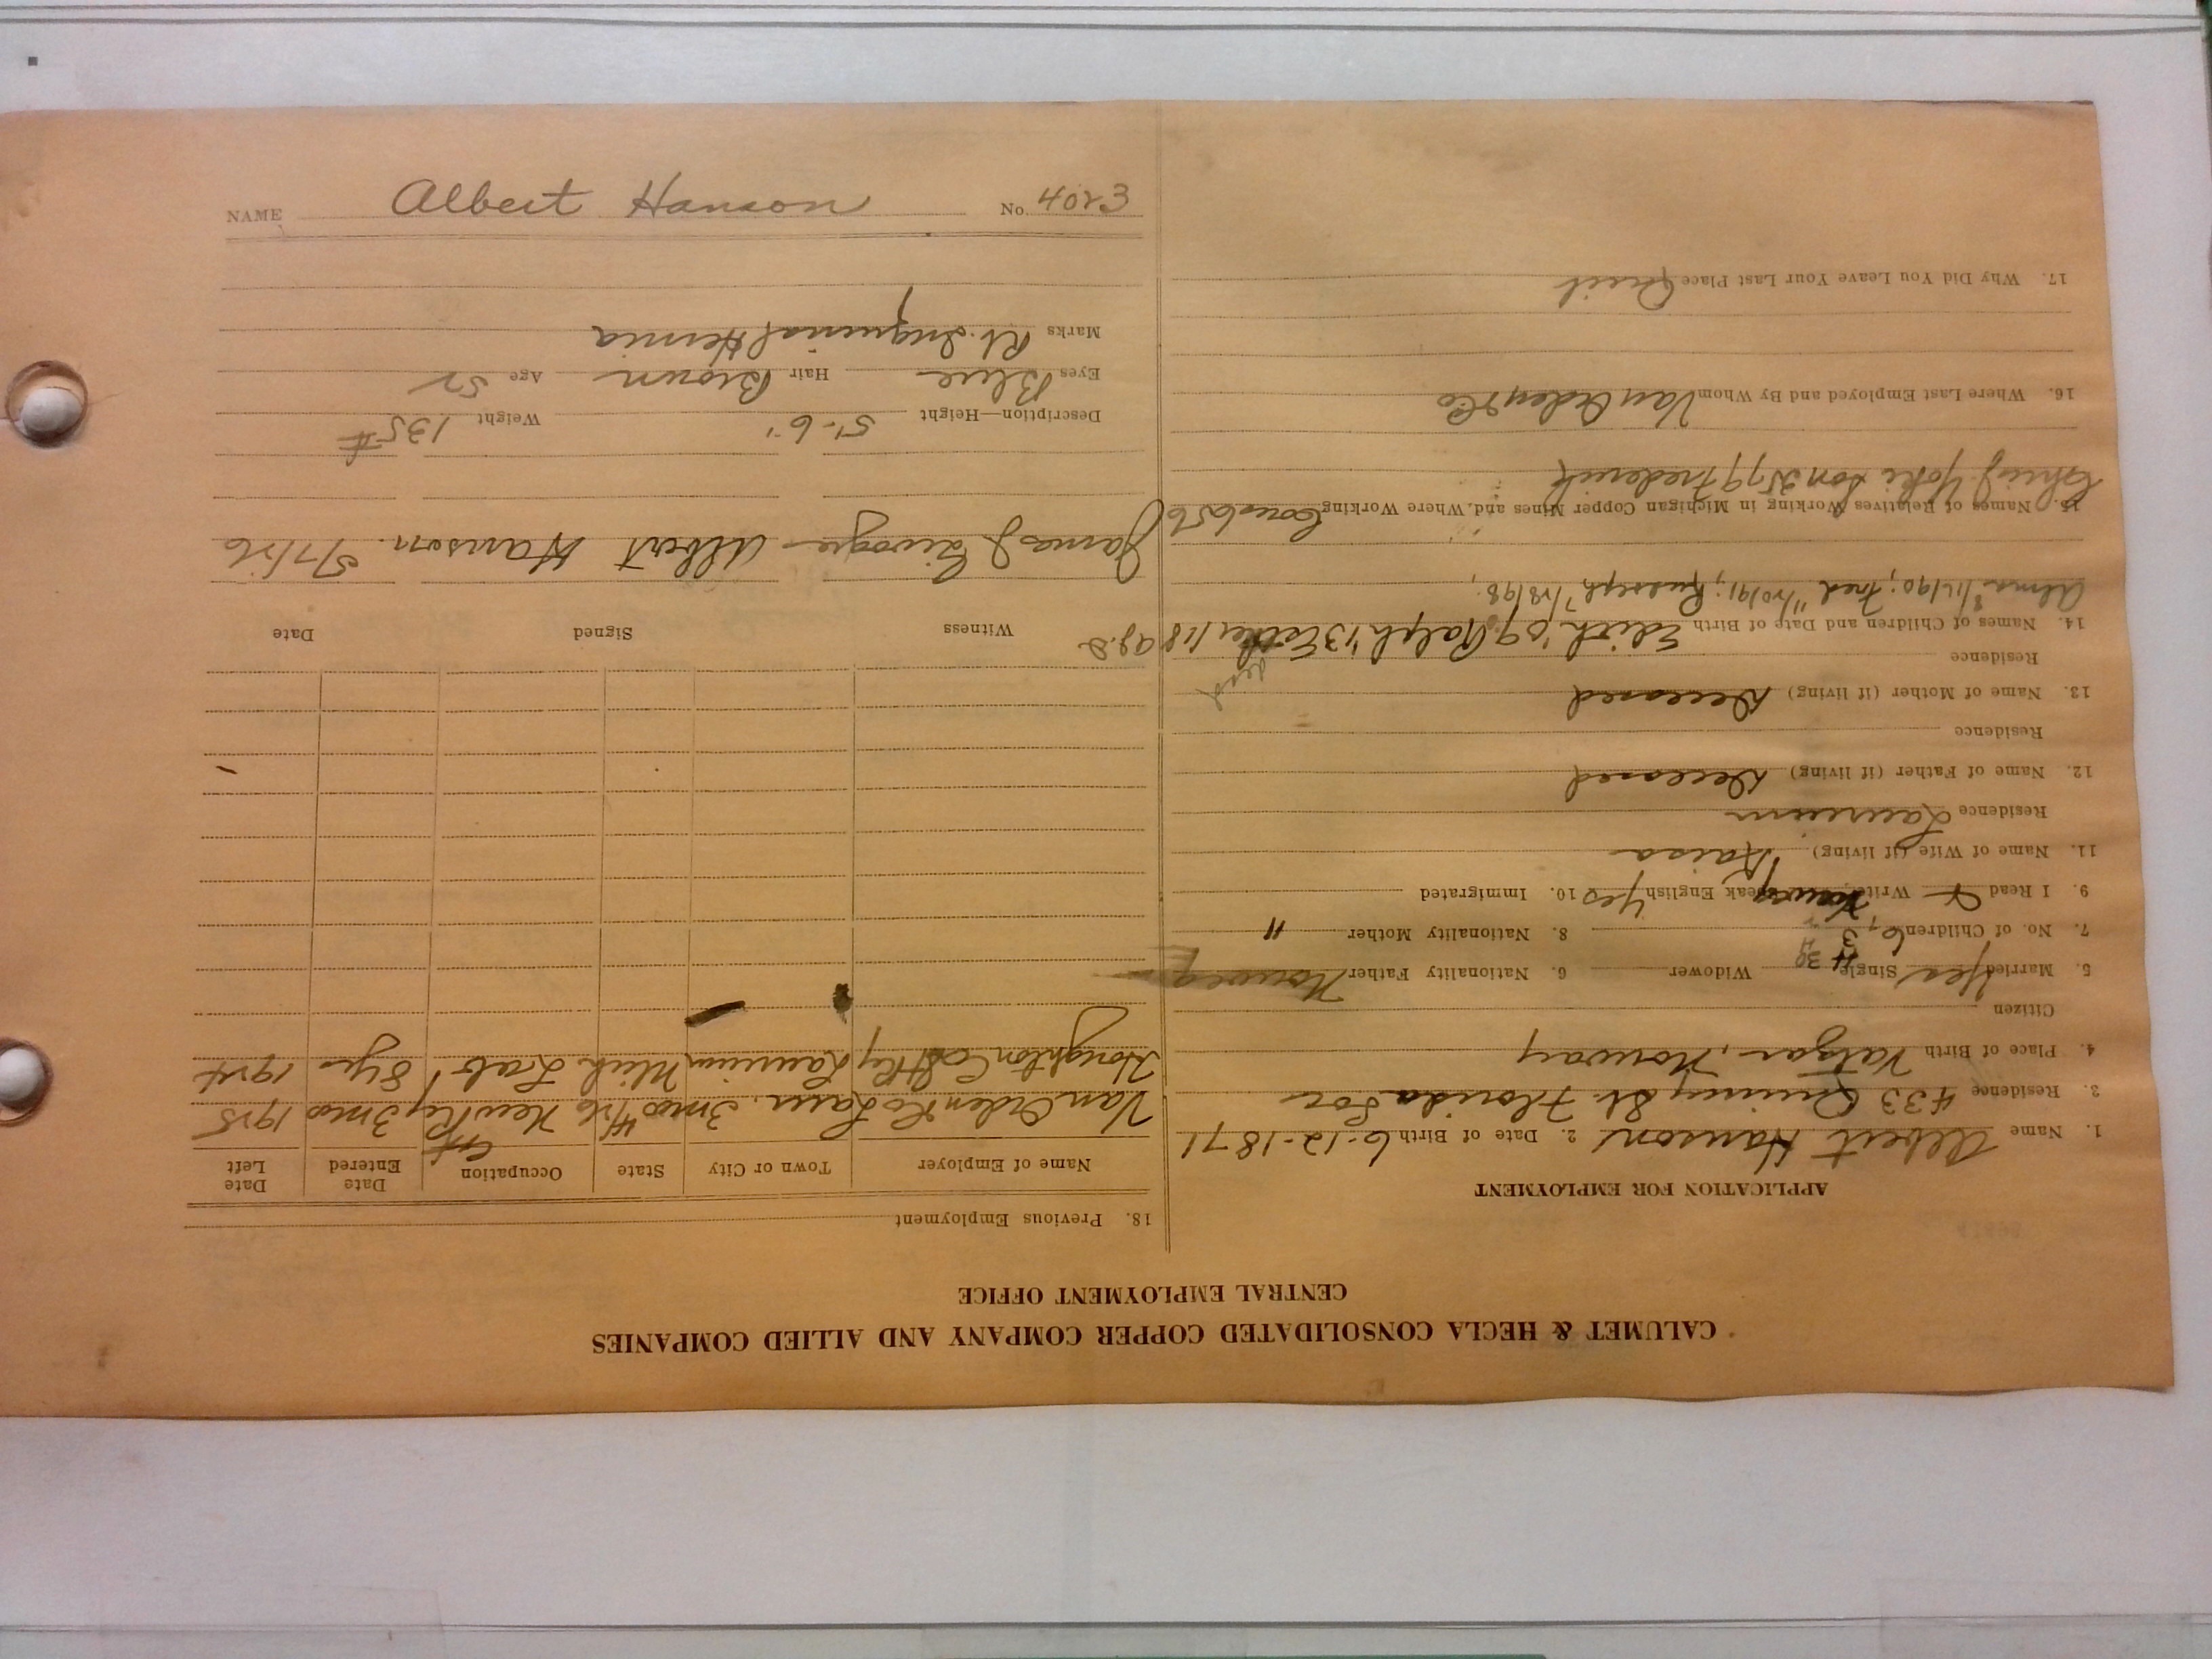 NAME Albert Hanson No. 4023
CALUMET & HECLA CONSOLIDATED COPPER COMPANY AND ALLIED COMPANIES
CENTRAL EMPLOYMENT OFFICE
APPLICATION FOR EMPLOYMENT
1. Name Albert Hanson 2. Date of Birth 6-12-1871
3. Residence 433 Quincy St. Florida Loc
4. Place of Birth Norway
Citizen
5. Married Yes Single Widower 6. Nationality Father Norweg
7. No. of Children 6, 3 8. Nationality Mother "
9. I Read Write Speak English Yes 10. Immigrated
11. Name of Wife (if living) Kaisa
Residence Laurium
12. Name of Father (if living) Deceased
Residence
13. Name of Mother (if living) Deceased
Residence
14. Names of Children and Date of Birth Edith '09 Ralph '13 Esther 118
Alma 8/12/90; Fred 11/20/91; Rudolph 7/28/98
15. Names of Relatives Working in Michigan Copper Mines and Where Working
son Frederick
16. Where Last Employed and By Whom Van Orden & Co
17. Why Did You Leave Your Last Place Quit
18. Previous Employment
Name of Employer Town or City State Occupation Date Entered Date Left
Van Orden Co Laur. 3 mos 3 mos 1925
Houghton Co Laurium Mich Lab 8 yrs 1924
Witness Signed Date
James J. Albert Hanson. 5/7/26
Description—Height 5'-6" Weight 135#
Eyes Blue Hair Brown Age 52
Marks Rt. Inguinal Hernia